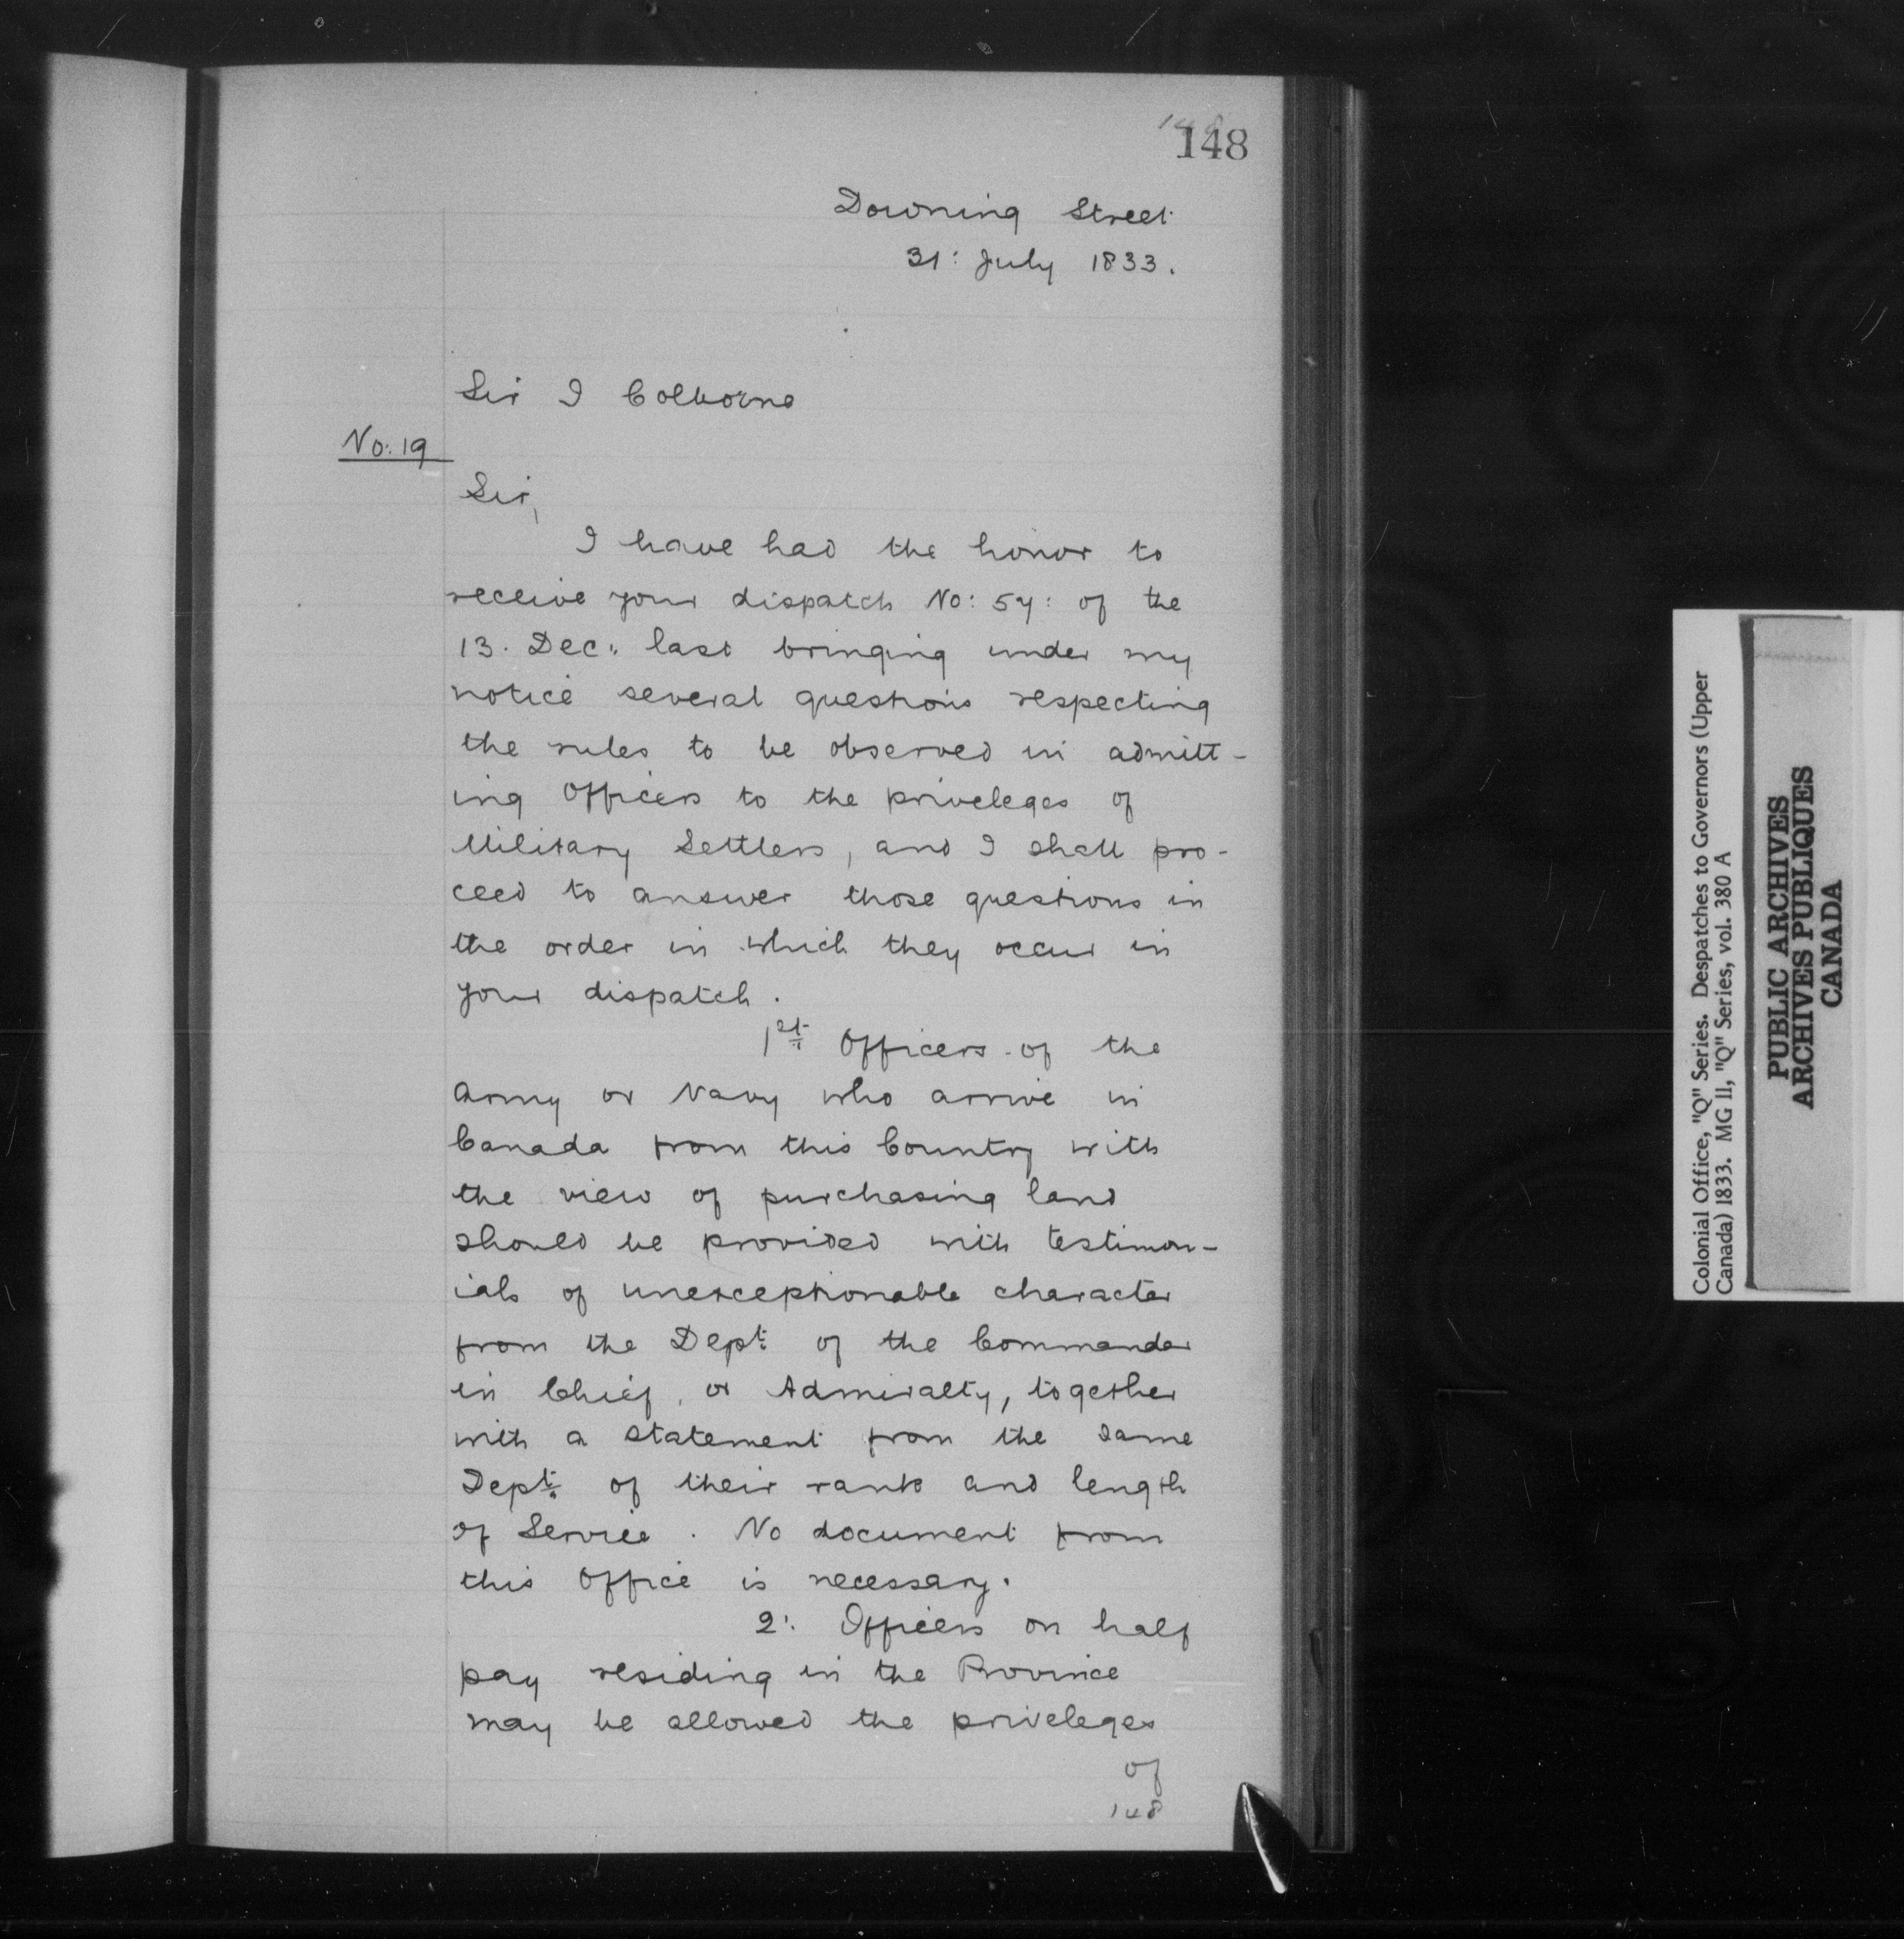 148
148
Downing Street
31: July 1833.
Sir J Colborne
No: 19
Sir,
I have had the honor to
receive your dispatch No: 57: of the
13. Dec: last bringing under my
notice several questions respecting
the rules to be observed in admitt-
ing Officers to the priveleges of
Military Settlers, and I shall pro-
ceed to answer those questions in
the order in which they occur in
your dispatch.
1st Officers of the
Army or Navy who arrive in
Canada from this Country with
the view of purchasing land
should be provided with testimon-
ials of unexceptionable character
from the Dept: of the Commander
in Chief, or Admiralty, together
with a statement from the same
Dept: of their rank and length
of Service. No document from
this Office is necessary.
2: Officers on half
pay residing in the Province
may be allowed the priveleges
of
148
Colonial Office, "Q" Series. Despatches to Governors (Upper
Canada) 1833. MG 11, "Q" Series, vol. 380 A
PUBLIC ARCHIVES
ARCHIVES PUBLIQUES
CANADA